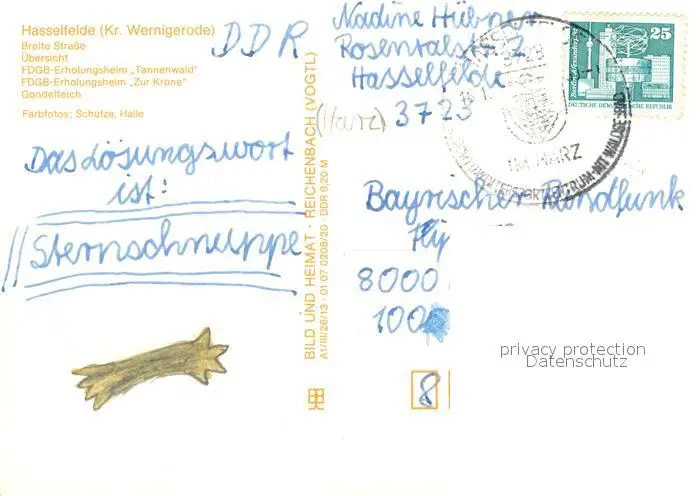 Hasselfelde (Kr. Wernigerode)
Breite Straße
Übersicht
FDGB-Erholungsheim „Tannenwald"
FDGB-Erholungsheim „Zur Krone"
Gondelteich
Farbfotos: Schütze, Halle
DDR
Das Lösungswort
ist:
Sternschnuppe
BILD UND HEIMAT · REICHENBACH (VOGTL)
A1/III/26/13 · 01 07 0208/20 · DDR 0,20 M
Nadine Hübner
Rosentalstr. 2
Hasselfelde
(Harz)
3723
25
DEUTSCHE DEMOKRATISCHE REPUBLIK
IM HARZ
Bayrischer Rundfunk
8000
100
8
privacy protection
Datenschutz